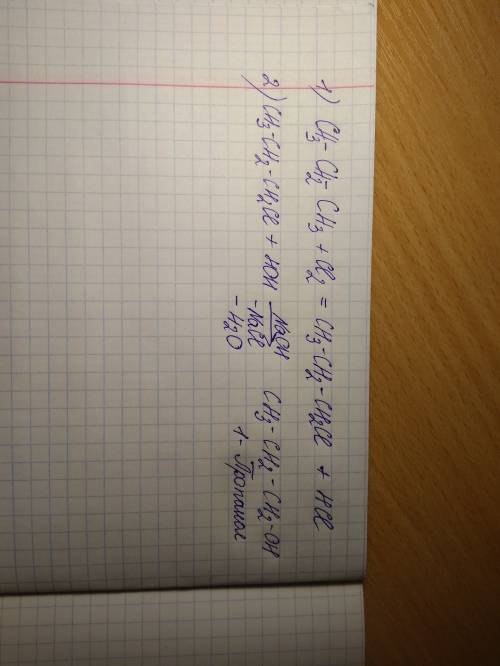 1) CH3-CH2-CH3 + Cl2 = CH3-CH2-CH2Cl + HCl
2) CH3-CH2-CH2Cl + HOH NaOH CH3-CH2-CH2-OH
-NaCl 1-Пропанол
-H2O